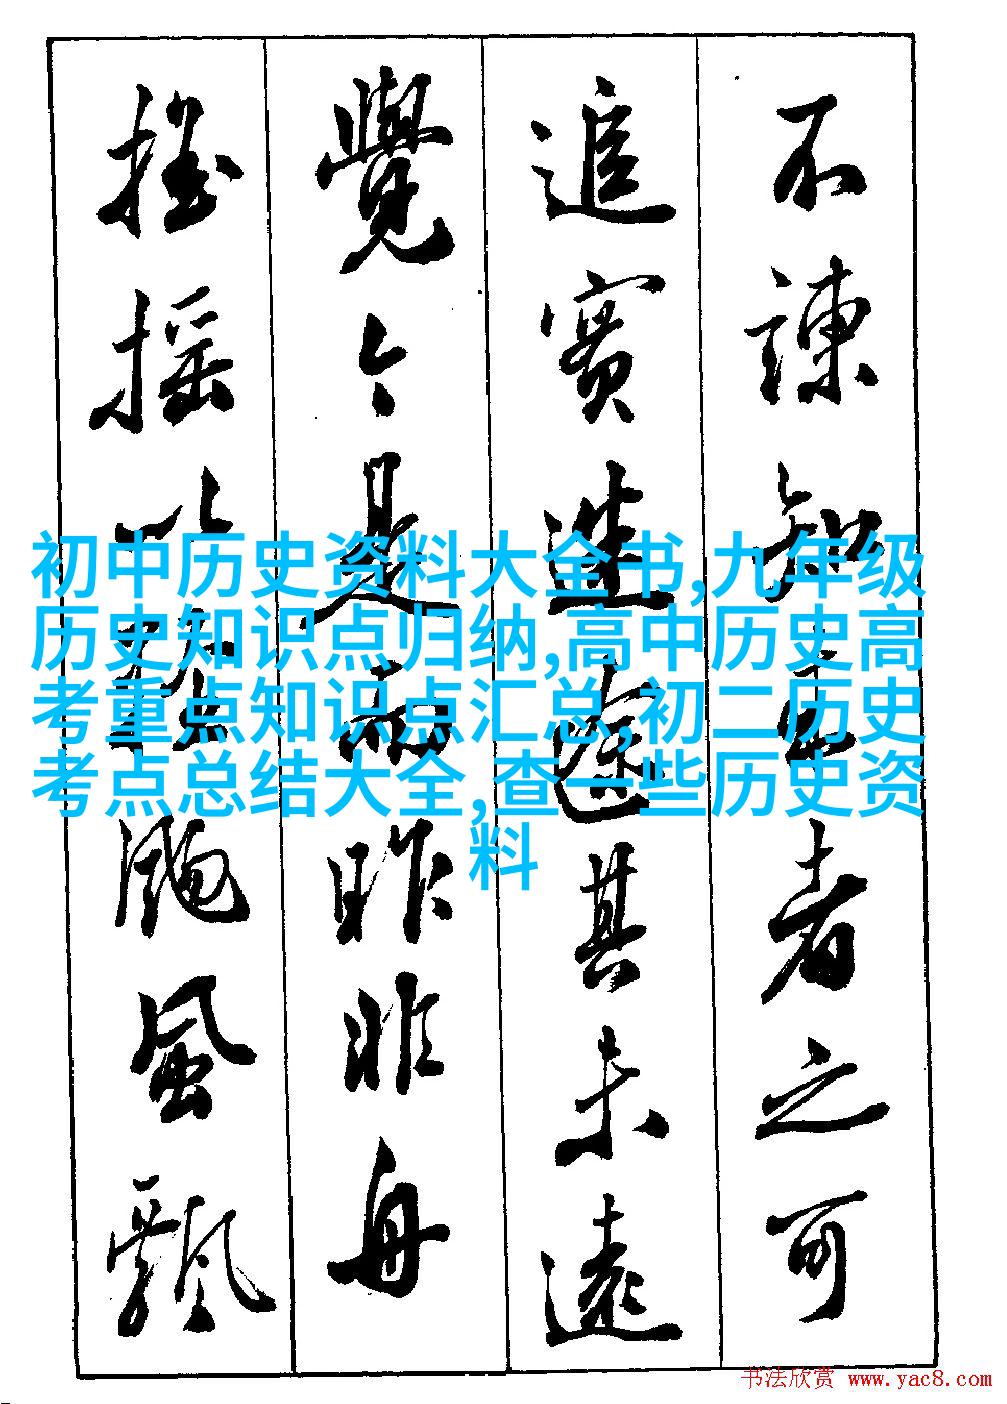 不諫知來者之可
追實迷途其未遠
覺今是而昨非舟
搖搖以輕颺風飄
初中历史资料大全书,九年级
历史知识点归纳,高中历史高
考重点知识点汇总,初二历史
考点总结大全,查一些历史资
料
书法欣赏 www.yac8.com